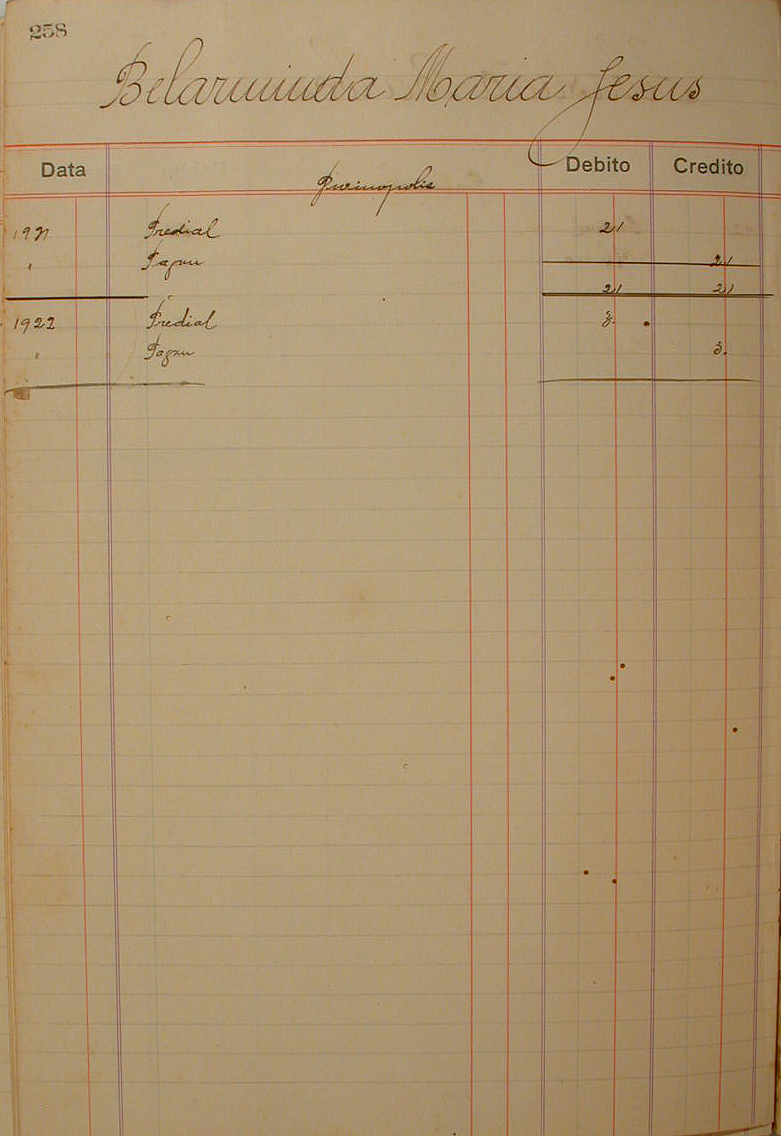 258
Belarminda Maria Jesus
Data Debito Credito
Purinopolis
1921 Predial 21
" Pagou 21
21 21
1922 Predial 3.
" Pagou 3.